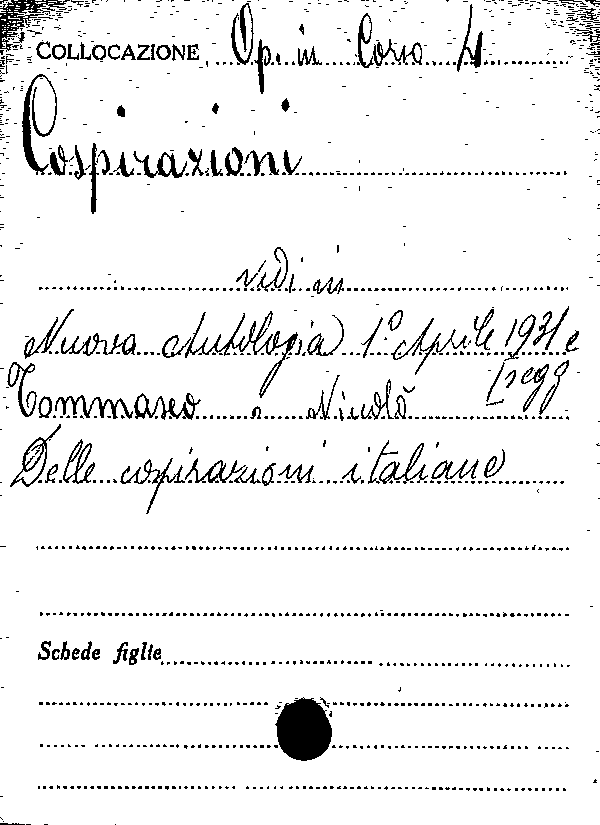 COLLOCAZIONE Op. in Corso 4
Cospirazioni
vedi in
Nuova Antologia 1° Aprile 1931 e
[segg
Tommaseo Nicolò
Delle cospirazioni italiane
Schede figlie